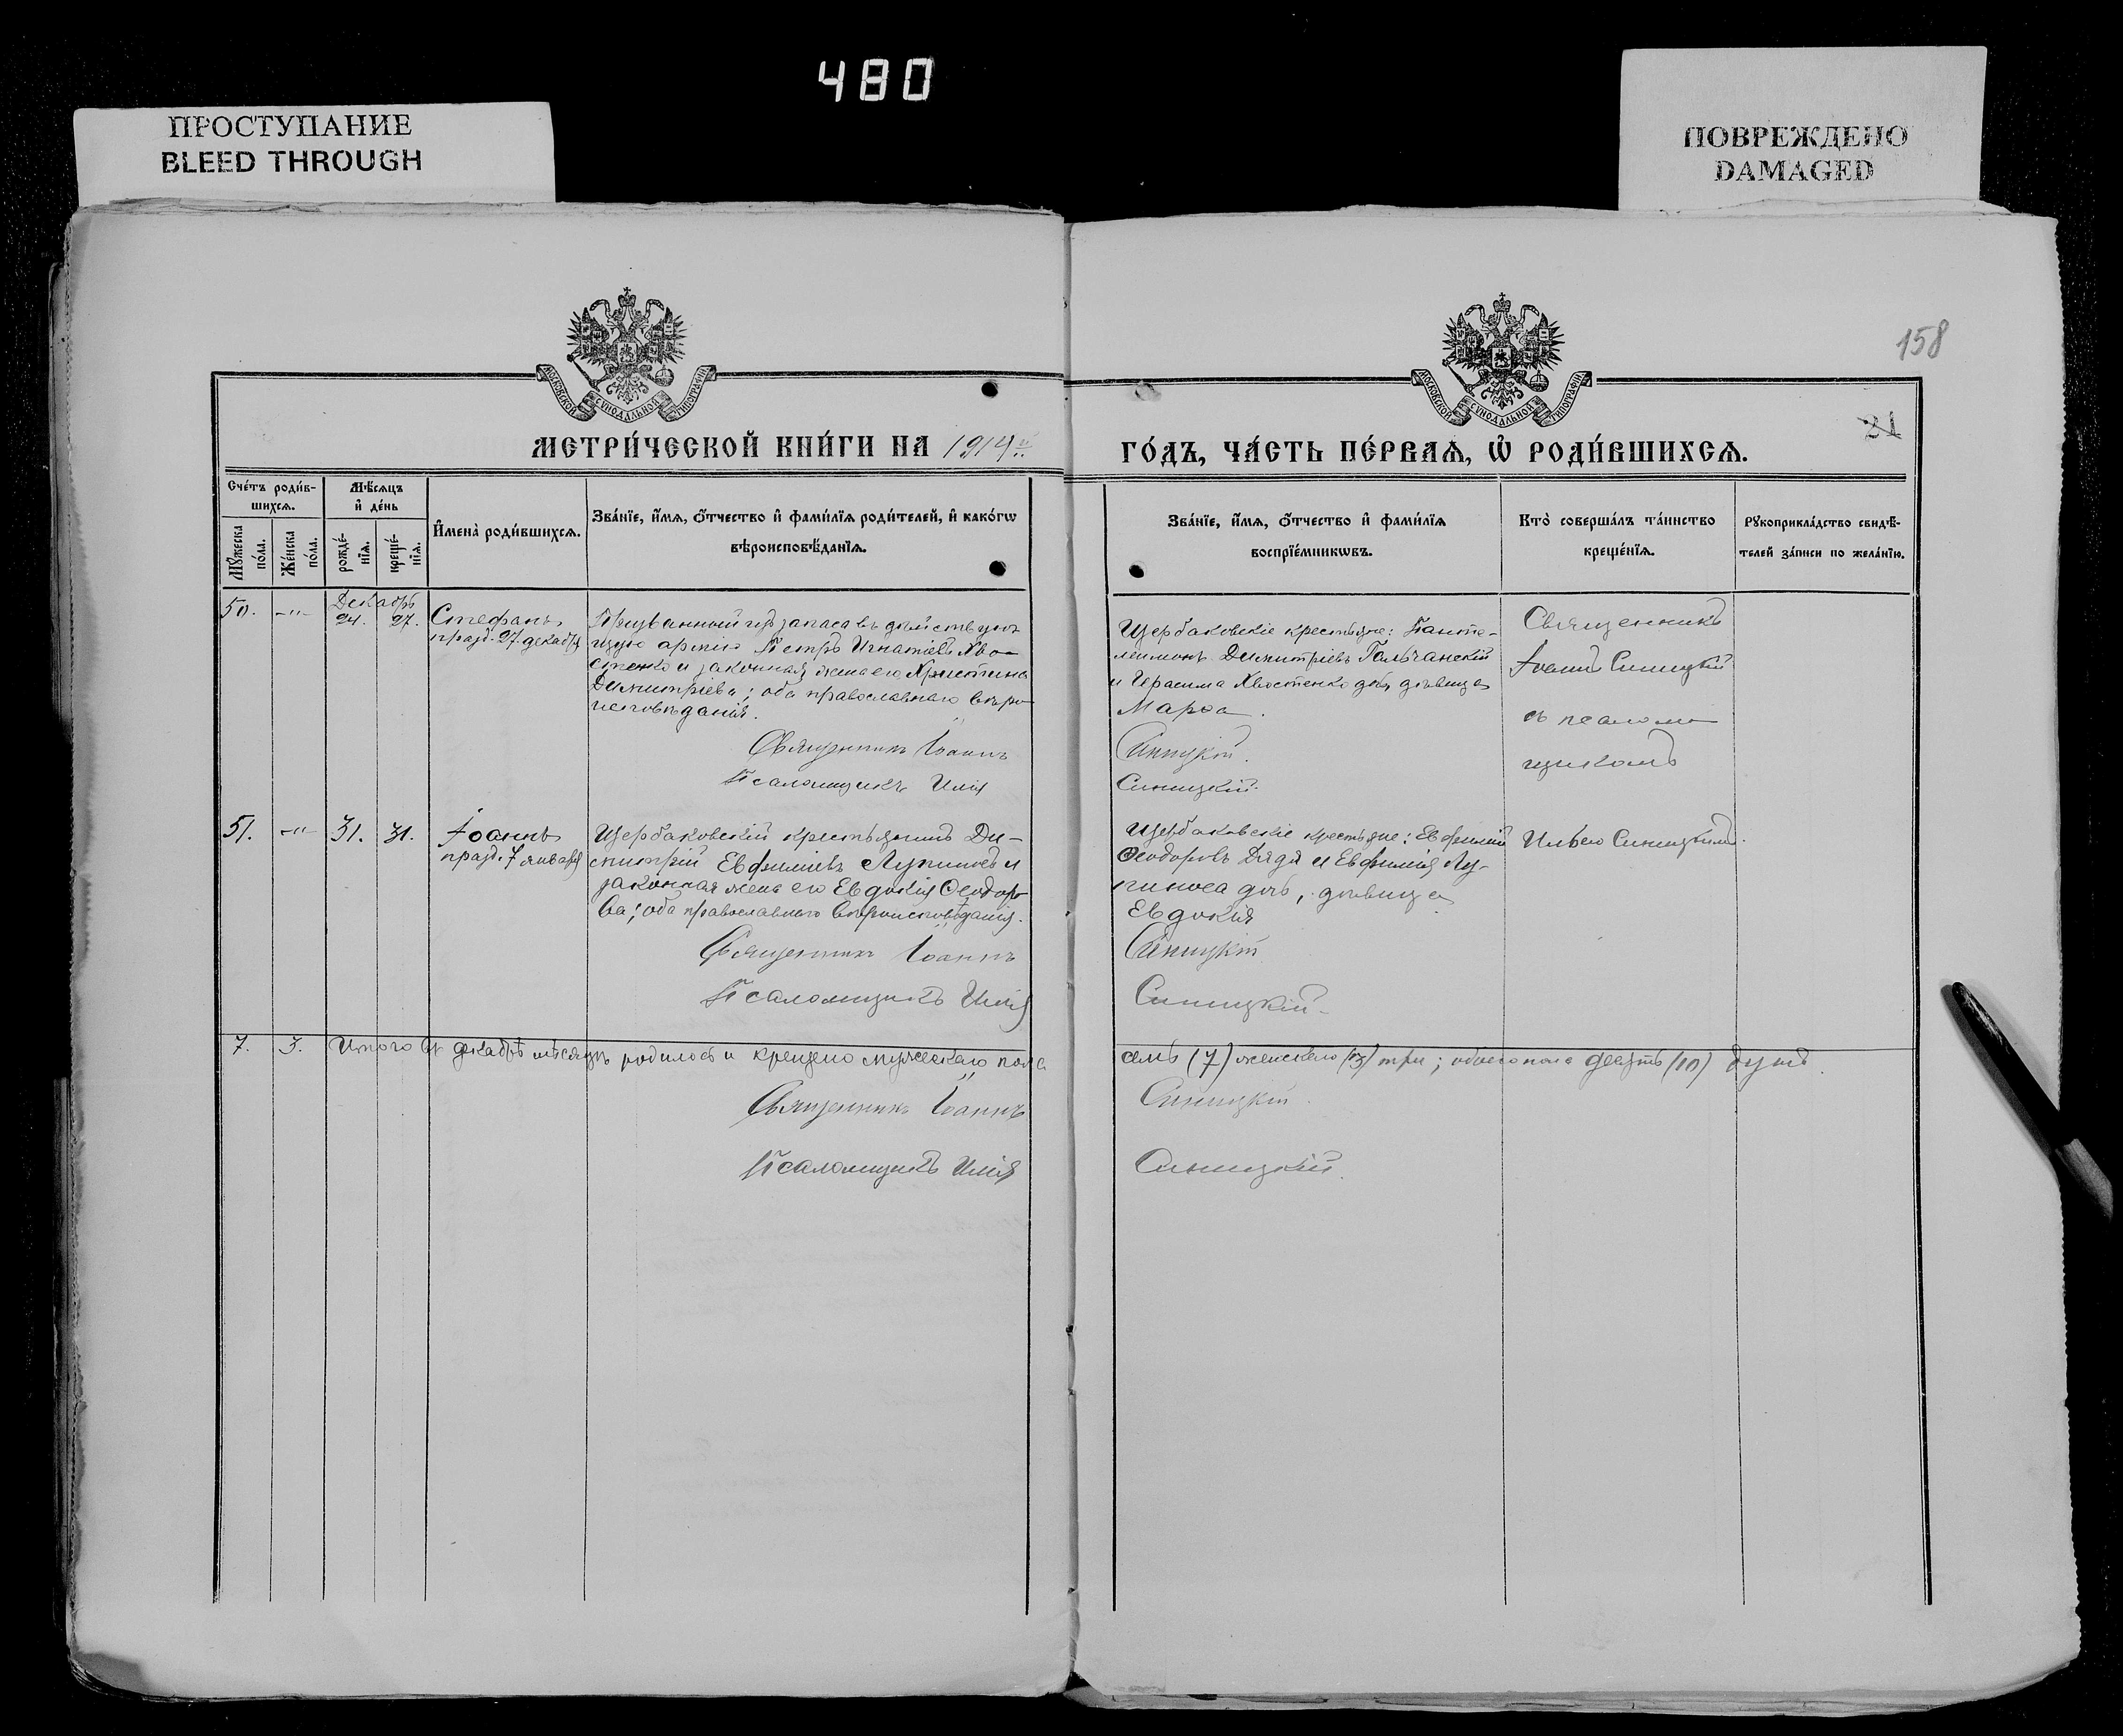 480
ПРОСТУПАНИЕ
BLEED THROUGH
ПОВРЕЖДЕНО
DAMAGED
158
21
МОСКОВСКОЙ СѴНОДАЛЬНОЙ ТИПОГРАФІИ
МОСКОВСКОЙ СѴНОДАЛЬНОЙ ТИПОГРАФІИ
МЕТРИ́ЧЕСКОЙ КНИ́ГИ НА 1914й
ГО́ДЪ, ЧА́СТЬ ПЕ́РВАѦ, Ѡ҆ РОДИ́ВШИХСѦ.
Сче́тъ роди́в-
шихсѧ.
Мꙋ́жеска по́ла.
Же́нска по́ла.
Мѣ́сѧцъ
и҆ де́нь
рожде́-
нїѧ.
креще́-
нїѧ.
И҆мена̀ роди́вшихсѧ.
Зва́нїе, и҆́мѧ, ѻ҆́тчество и҆ фами́лїѧ роди́телей, и҆ како́гѡ
вѣроисповѣ́данїѧ.
Зва́нїе, и҆́мѧ, ѻ҆́тчество и҆ фами́лїѧ
воспрїе́мникѡвъ.
Кто̀ соверша́лъ та́инство
креще́нїѧ.
Рꙋкоприкла́дство свидѣ́-
телей за́писи по жела́нїю.
50. -"- Декабрь
24. 27.
Стефанъ
празд. 27 декабря
Призванный изъ запаса въ действую-
щую армію Петръ Игнатіевъ Хво-
стенко и законная жена его Христина
Димитріева; оба православнаго веро-
исповѣданія.
Священникъ Іоаннъ
Псаломщикъ Илія
Щербаковскіе крестьяне: Панте-
леимонъ Димитріевъ Гальчанскій
и Герасима Хвостенко дочь девица
Марѳа.
Синицкій.
Синицкій.
Священникъ
Іоаннъ Синицкій
съ псалом-
щикомъ
51. -"- 31. 31.
Іоаннъ
празд. 7 января
Щербаковскій крестьянинъ Ди-
митрій Евфиміевъ Лупиносъ и
законная жена его Евдокія Ѳеодоро-
ва; оба православнаго вероисповѣданія.
Священникъ Іоаннъ
Псаломщикъ Илія
Щербаковскіе крестьяне: Евфимій
Ѳеодоровъ Дядя и Евфимія Лу-
пиноса дочь, девица
Евдокія
Синицкій
Синицкій
Ильею Синицкимъ.
7. 3. Итого въ декабрѣ мѣсяцѣ родилось и крещено мужескаго пола
семь (7) женскаго (3) три; обоего пола десять (10) душъ.
Священникъ Іоаннъ
Синицкій.
Псаломщикъ Илія
Синицкій.